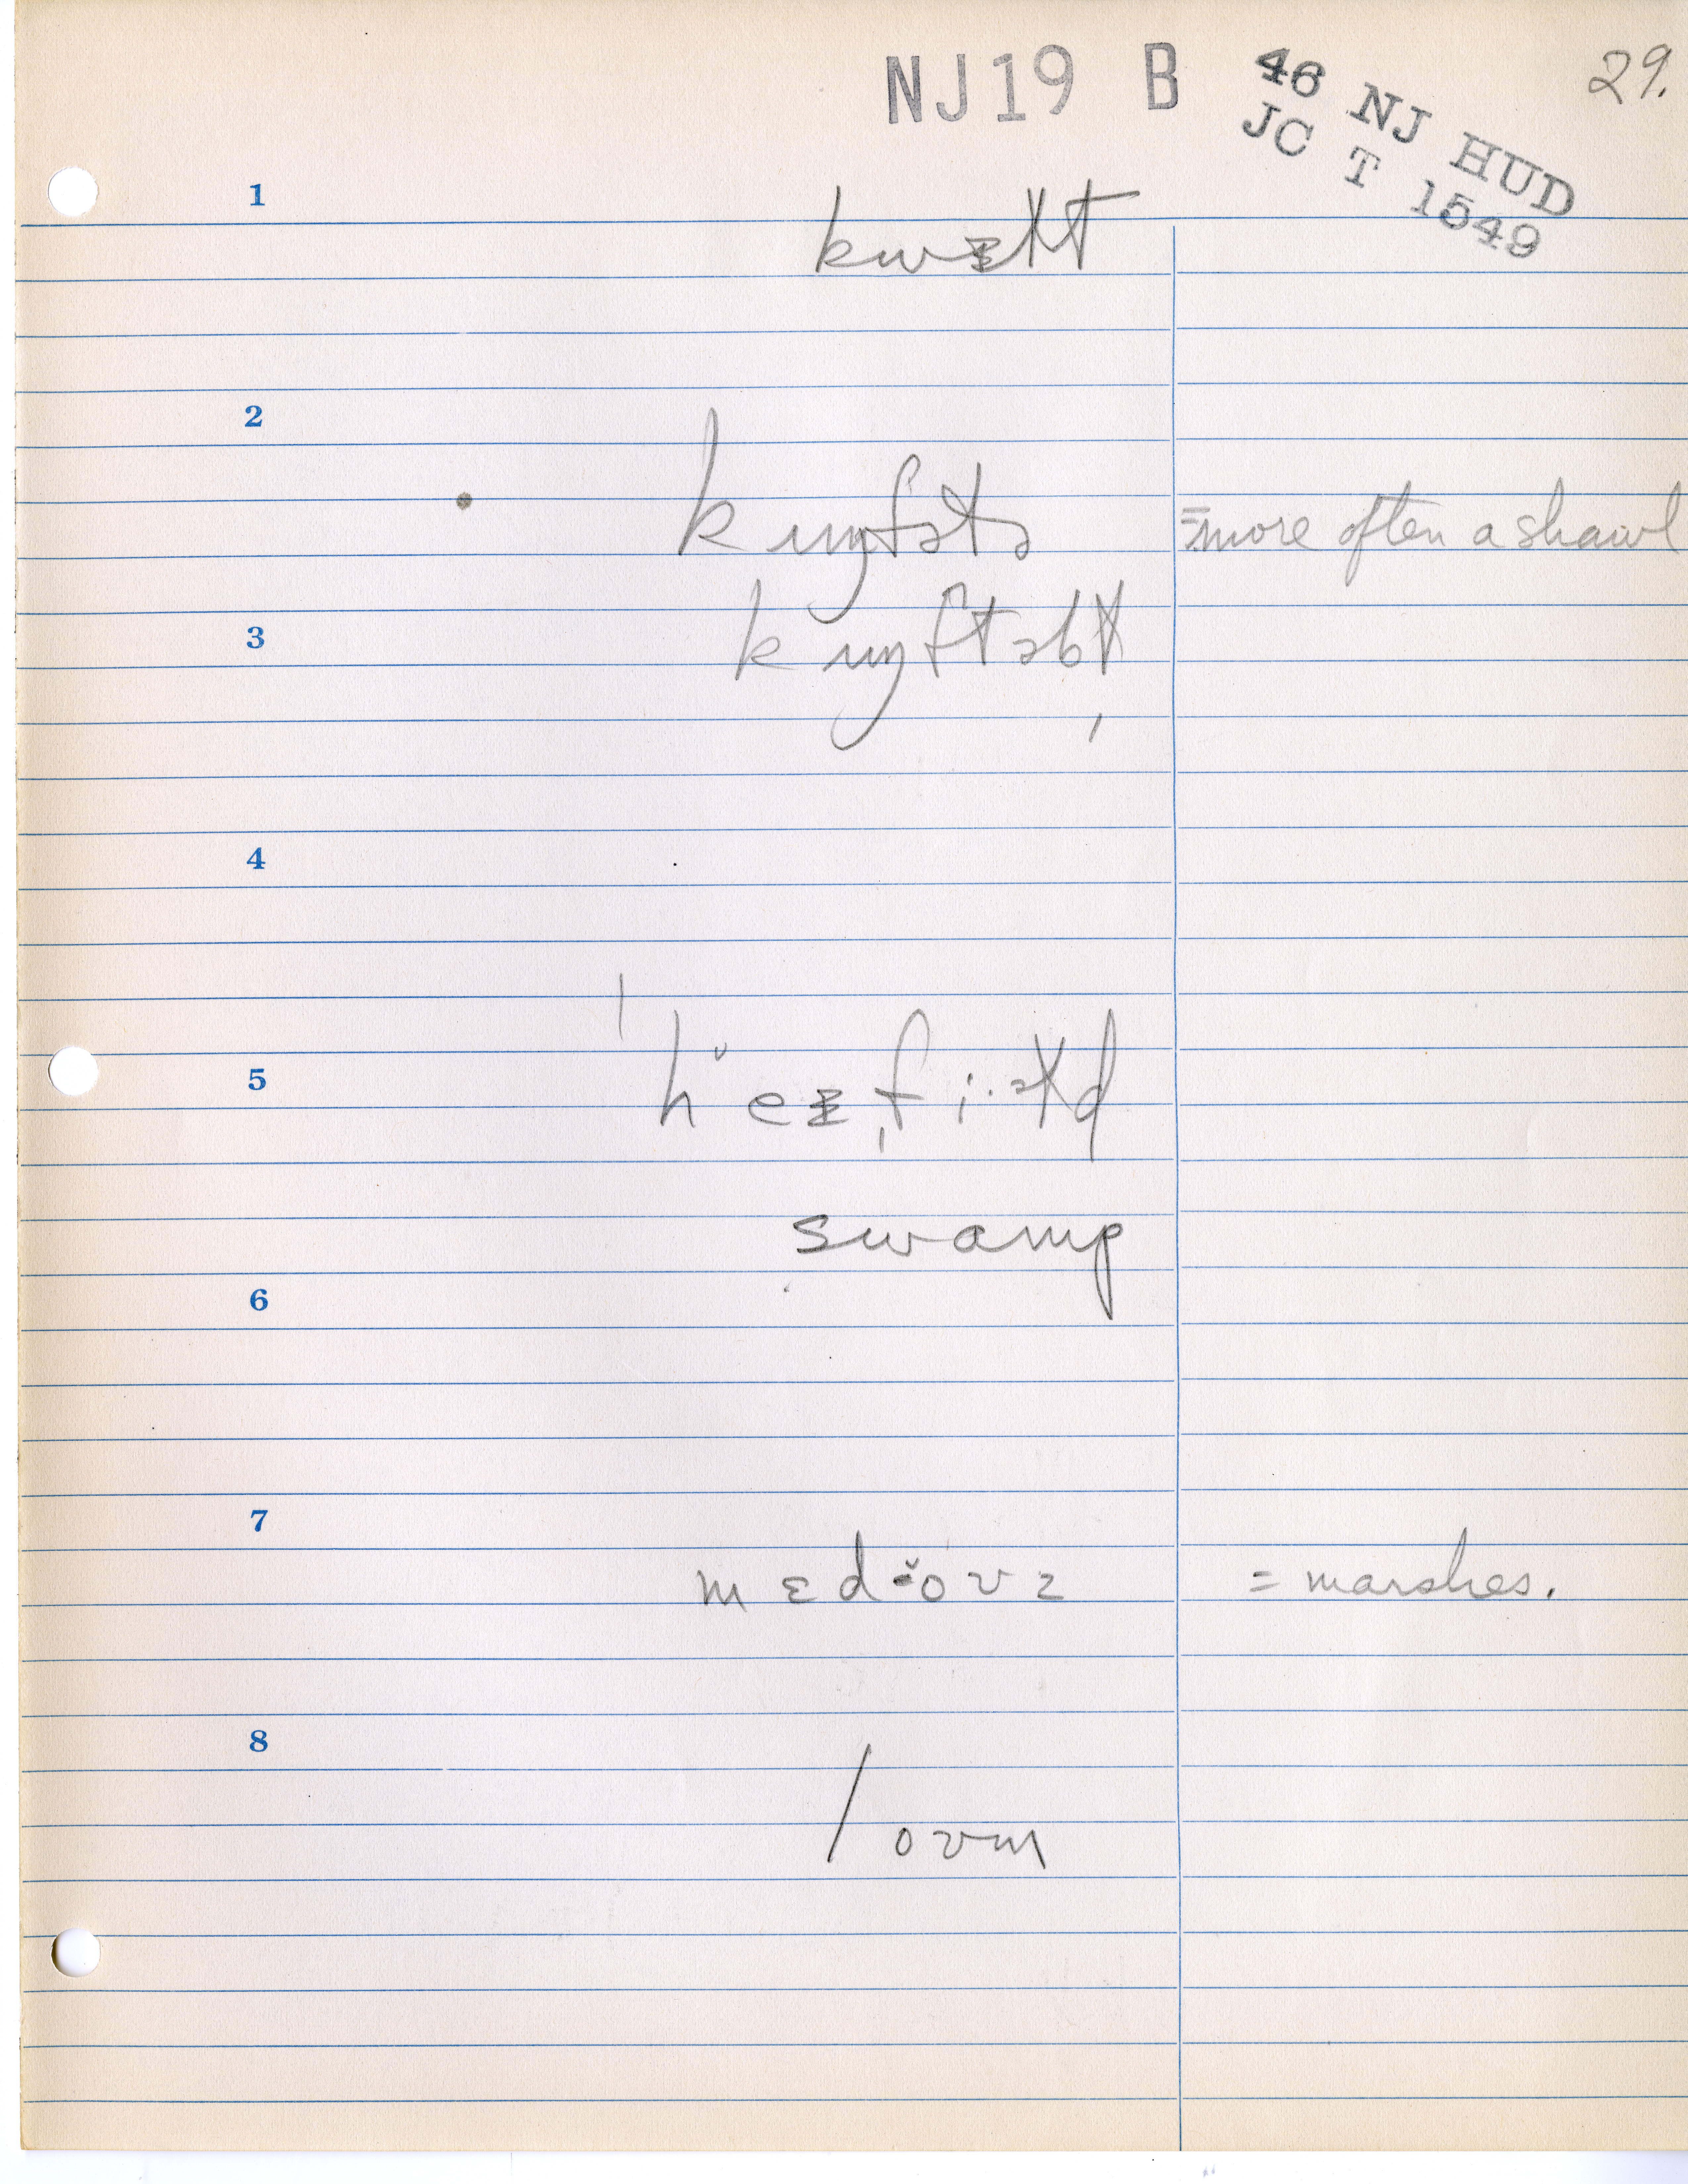 NJ19 B
46 NJ HUD
JC T 1549
29.
1
kwɪɫt
2
kʌɱfətə
=more often a shawl
3
kʌɱftəbɫ̩
4
5
6
swamp
7
mɛd
= marshes.
8
loʊm